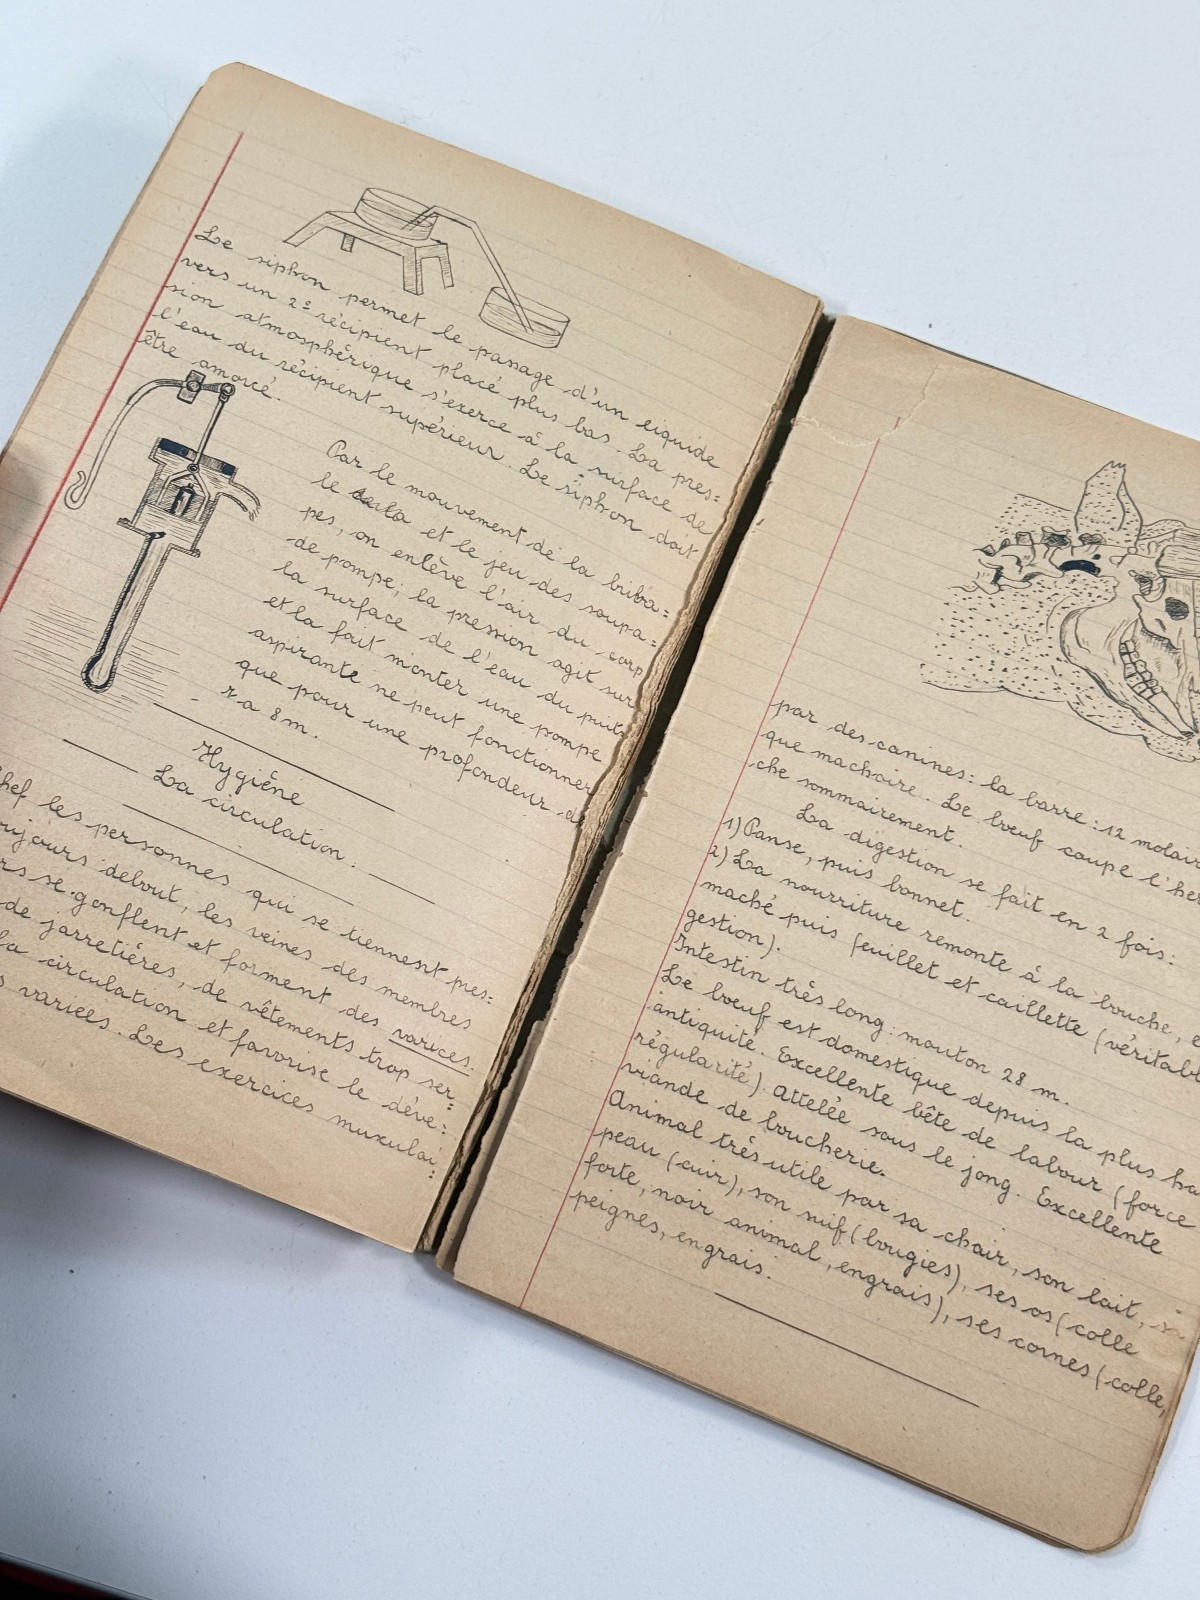 Le siphon permet le passage d'un liquide
vers un 2e récipient placé plus bas. La pres=
sion atmosphérique s'exerce à la surface de
l'eau du récipient supérieur. Le siphon doit
être amorcé.
Par le mouvement de la brin
le et le jeu des soupa=
pes, on enlève l'air du corp
de pompe; la pression agit sur
la surface de l'eau du puits
et la fait monter une pompe
aspirante ne peut fonctionner
que pour une profondeur de
7 a 8 m.
Hygiène
La circulation.
Chef les personnes qui se tiennent pres=
oujours debout, les veines des membres
rs se gonflent et forment des varices.
de jarretières, de vêtements trop ser=
la circulation et favorise le déve=
s varices. Les exercices musculai=
par des canines: la barre: 12 molair
que machoire. Le bœuf coupe l'her
che sommairement.
La digestion se fait en 2 fois:
1) Panse, puis bonnet.
2) La nourriture remonte à la bouche, e
maché puis feuillet et caillette (véritabl
gestion).
Intestin très long: mouton 28 m.
Le bœuf est domestique depuis la plus ha
antiquité. Excellente bête de labour (force
régularité). Attelée sous le jong. Excellente
viande de boucherie.
Animal très utile par sa chair, son lait, s
peau (cuir), son suif (bougies), ses os (colle
forte, noir animal, engrais), ses cornes (colle,
peignes, engrais.